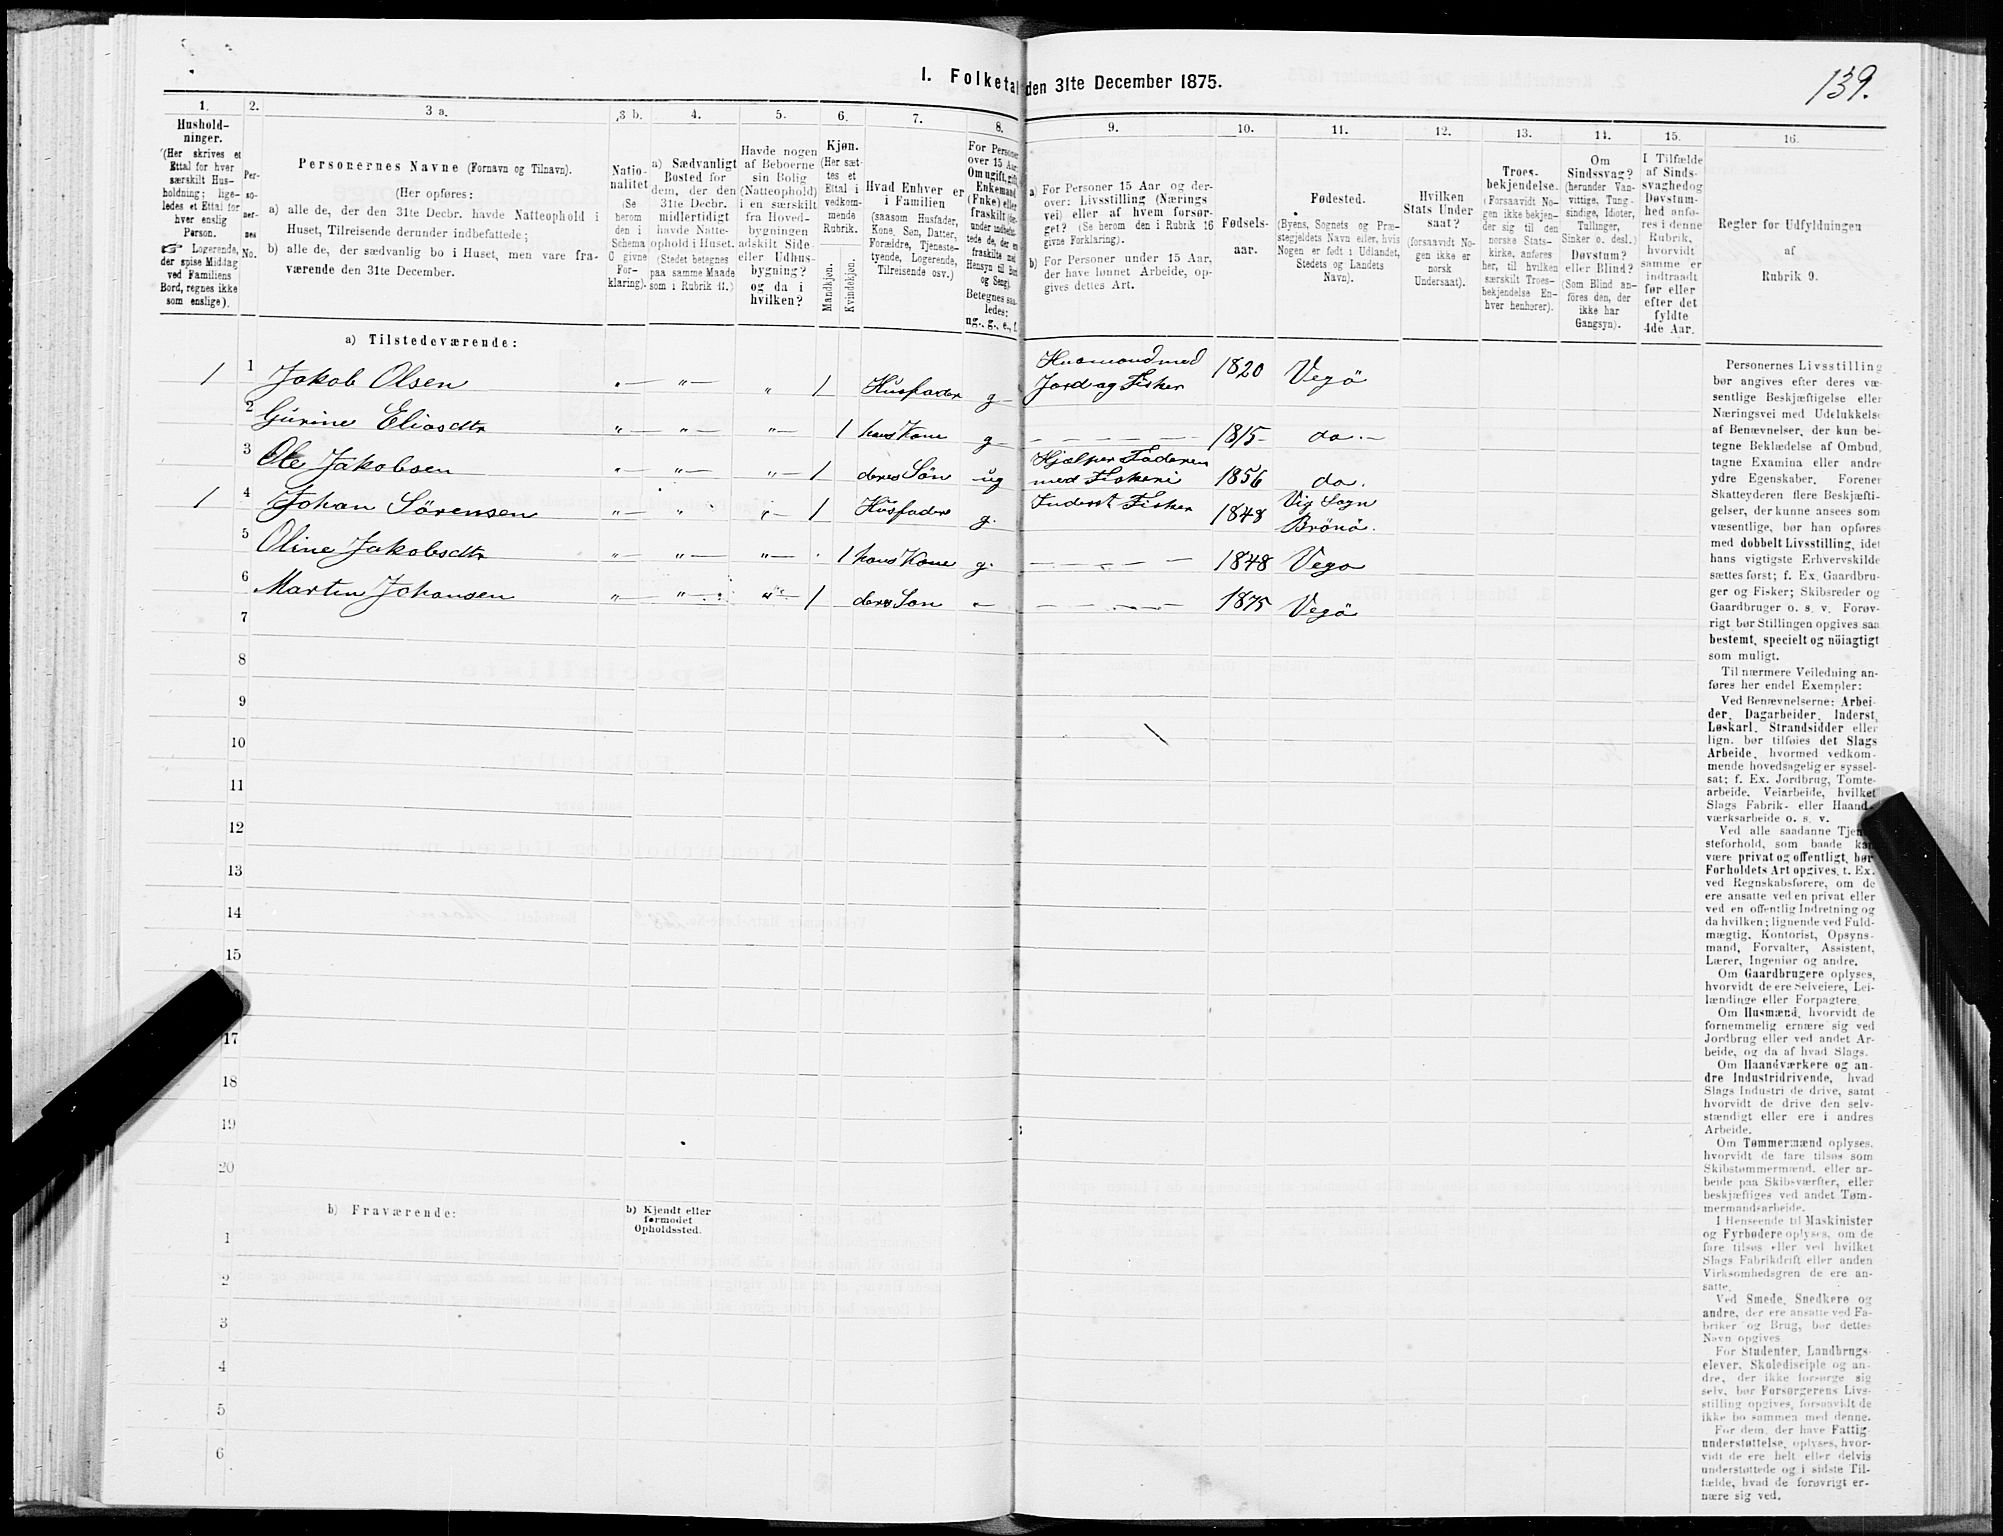 139.
1. Folketal den 31te December 1875.
1. 2. 3 a. 3 b. 4. 5. 6. 7. 8. 9. 10. 11. 12. 13. 14. 15. 16.
Hushold-
ninger.
(Her skrives et
Ettal for hver
særskilt Hus-
holdning; lige-
ledes et Ettal for
hver enslig
Person.
☞ Logerende,
der spise Middag
ved Familiens
Bord, regnes ikke
som enslige).
Per-
so-
ner-
nes
No.
Personernes Navne (Fornavn og Tilnavn).
(Her opføres:
a) alle de, der den 31te Decbr. havde Natteophold i
Huset, Tilreisende derunder indbefattede;
b) alle de, der sædvanlig bo i Huset, men vare fra-
værende den 31te December.
Natio-
nalitet
(Se
herom
den i
Schema
C givne
For-
klaring).
a) Sædvanligt
Bosted for
dem, der den
31te Decbr.
midlertidigt
havde Natte-
ophold i Huset.
(Stedet betegnes
paa samme Maade
som i Rubrik 11.)
Havde nogen
af Beboerne
sin Bolig
(Natteophold)
i en særskilt
fra Hoved-
bygningen
adskilt Side-
eller Udhus-
bygning?
og da i
hvilken?
Kjøn.
(Her sæt-
tes et
Ettal i
vedkom-
mende
Rubrik.
Mandkjøn.
Kvindekjøn.
Hvad Enhver er
i Familien
(saasom Husfader,
Kone, Søn, Datter,
Forældre, Tjeneste-
tyende, Logerende,
Tilreisende osv.)
For Personer
over 15 Aar:
Om ugift, gift,
Enkemand
(Enke) eller
fraskilt (der-
under indbefat-
tede de, der er
fraskilte med
Hensyn til Bord
og Seng).
Betegnes saa-
ledes:
ug., g., e., f.
a) For Personer 15 Aar og der-
over: Livsstilling (Nærings-
vei) eller af hvem forsør-
get? (Se herom den i Rubrik 16
givne Forklaring).
b) For Personer under 15 Aar,
der have lønnet Arbeide, op-
gives dettes Art.
Fødsels-
aar.
Fødested.
(Byens, Sognets og Præ-
stegjeldets Navn eller, hvis
Nogen er født i Udlandet,
Stedets og Landets
Navn).
Hvilken
Stats Under-
saat?
(forsaavidt No-
gen ikke er
norsk
Undersaat).
Troes-
bekjendelse.
(Forsaavidt No-
gen ikke bekjen-
der sig til den
norske Stats-
kirke, anføres
her, til hvilken
særskilt Troes-
bekjendelse En-
hver henhører).
Om
Sindssvag?
(herunder Van-
vittige, Tung-
sindige, Idioter,
Tullinger,
Sinker o. desl.)
Døvstum?
eller Blind?
(Som Blind an-
føres den, der
ikke har
Gangsyn).
I Tilfælde
af Sinds-
svaghed og
Døvstum-
hed anfø-
res i denne
Rubrik,
hvorvidt
samme er
indtraadt
før eller
efter det
fyldte
4de Aar.
Regler for Udfyldningen
af
Rubrik 9.
a) Tilstedeværende:
1 1 Jakob Olsen „— „— „ 1 Husfader g— Husmand med Jord og Fisker 1820 Vegö
2 Gurine Eliasdtr „— „— „— 1 hans Kone g— — — — 1815— do.—
3 Ole Jakobsen „— „— „— 1 deres Sön ug Hjælper Faderen med Fiskeri 1856 do.
1 4 Johan Sörensen „— „ „— 1 Husfader g. Inderst Fisker 1848 Vig Sogn Brönö.
5 Oline Jakobsdtr „— „— „— 1 hans Kone g. — — — 1848 Vego
6 Martin Johansen „— „— „— 1 deres Son — — — — 1875 Vegö
7
8
9
10
11
12
13
14
15
17
18
19
20
b) Fraværende:
b) Kjendt eller
formodet
Opholdssted.
1
2
3
4
5
6
Personernes Livsstilling
bør angives efter deres væ-
sentlige Beskjæftigelse eller
Næringsvei med Udelukkelse
af Benævnelser, der kun be-
tegne Beklædelse af Ombud,
tagne Examina eller andre
ydre Egenskaber. Forener
Skatteyderen flere Beskjæfti-
gelser, der kunne ansees som
væsentlige, bør han opføres
med dobbelt Livsstilling, idet
hans vigtigste Erhvervskilde
sættes først; f. Ex. Gaardbru-
ger og Fisker; Skibsreder og
Gaardbruger o. s. v. Forøv-
rigt bør Stillingen opgives saa
bestemt, specielt og nöiagtigt
som muligt.
Til nærmere Veiledning an-
føres her endel Exempler:
Ved Benævnelserne: Arbei-
der, Dagarbeider, Inderst,
Løskarl, Strandsidder eller
lign. bør tilføies det Slags
Arbeide, hvormed vedkom-
mende hovedsagelig er syssel-
sat; f. Ex. Jordbrug, Tomte-
arbeide, Veiarbeide, hvilket
Slags Fabrik- eller Haand-
værksarbeide o. s. v.
Ved alle saadanne Tjene-
steforhold, som baade kan
være privat og offentligt, bør
Forholdets Art opgives, f. Ex.
ved Regnskabsførere, om de
ere ansatte ved en privat eller
ved en offentlig Indretning og
da hvilken; lignende ved Fuld-
mægtig, Kontorist, Opsyns-
mand, Forvalter, Assistent,
Lærer, Ingeniør og andre.
Om Gaardbrugere oplyses,
hvorvidt de ere Selveiere, Lei-
lændinge eller Forpagtere.
Om Husmænd, hvorvidt de
fornemmelig ernære sig ved
Jordbrug eller ved andet Ar-
beide, og da af hvad Slags.
Om Haandværkere og an-
dre Industridrivende, hvad
Slags Industri de drive, samt
hvorvidt de drive den selv-
stændigt eller ere i andres
Arbeide.
Om Tømmermænd oplyses,
hvorvidt de fare tilsøs som
Skibstømmermænd, eller ar-
beide paa Skibsværfter, eller
beskjæftiges ved andet Tøm-
mermandsarbeide.
I Henseende til Maskinister
og Fyrbødere oplyses, om de
fare tilsøs eller ved hvilket
Slags Fabrikdrift eller anden
Virksomhedsgren de ere an-
satte.
Ved Smede, Snedkere og
andre, der ere ansatte ved Fa-
briker og Brug, bør dettes
Navn opgives.
For Studenter, Landbrugs-
elever, Skoledisciple og an-
dre, der ikke forsørge sig
selv, bør Forsørgerens Livs-
stilling opgives, forsaavidt de
ikke bo sammen med denne.
For dem, der have Fattig-
understøttelse, oplyses, hvor-
vidt de ere helt eller delvis
understøttede og i sidste Til-
fælde, hvad de forøvrigt er-
nære sig ved.